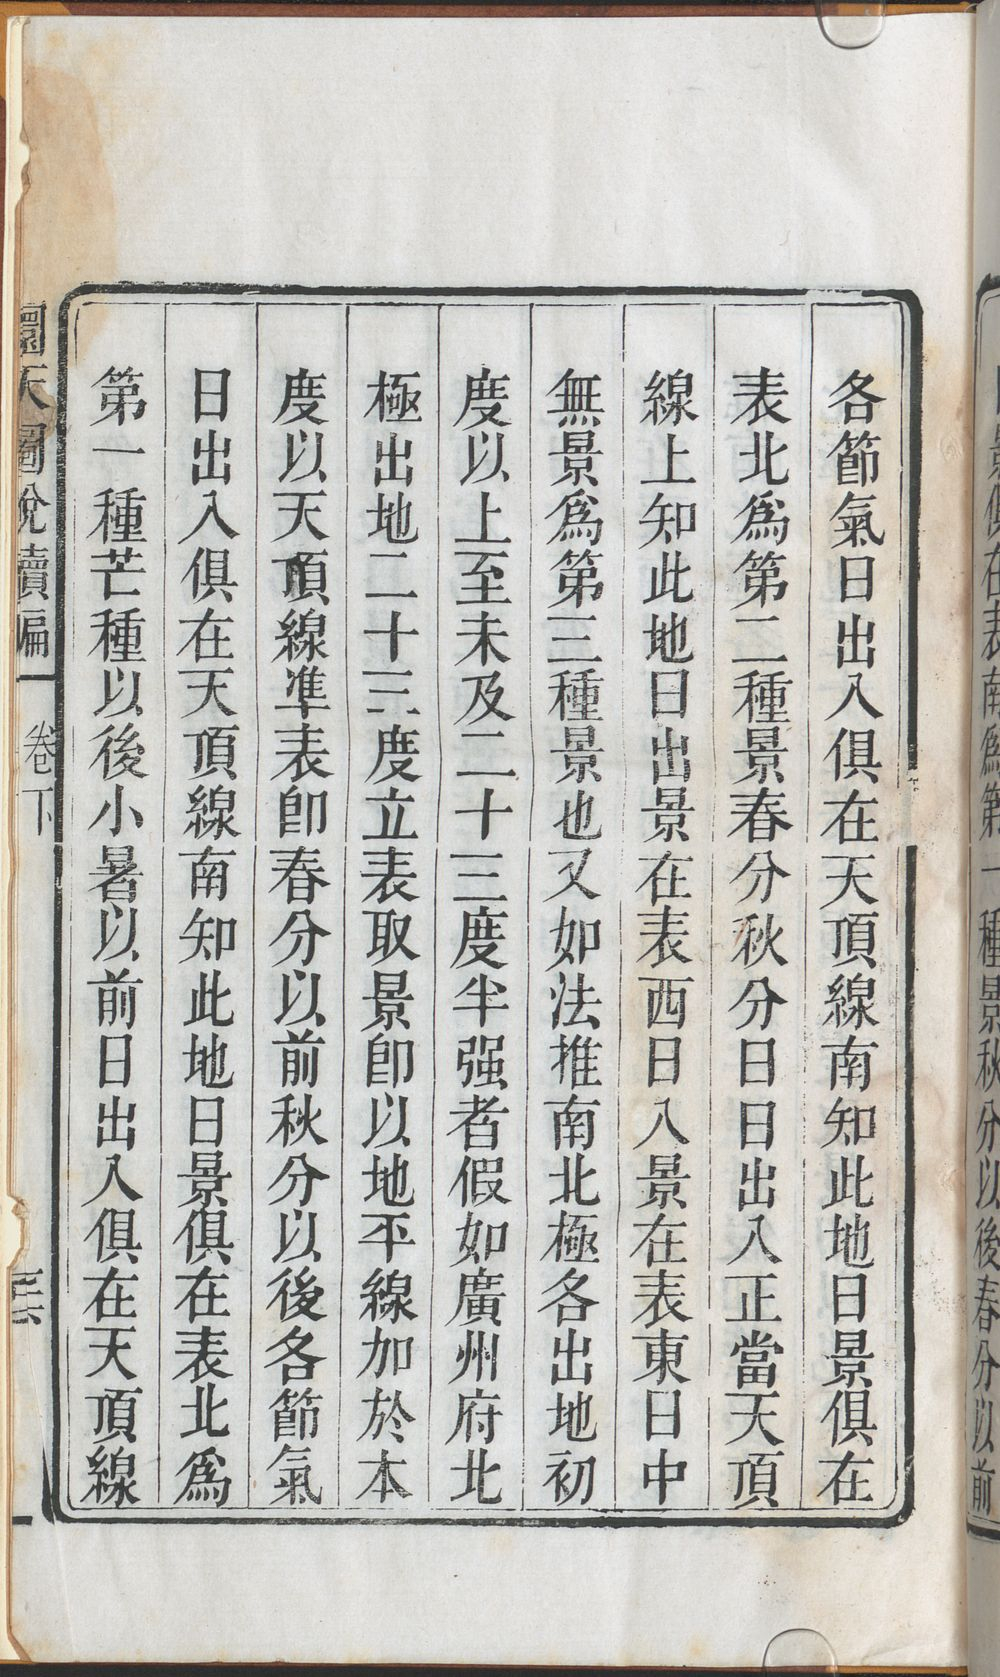 各節氣日出入俱在天頂線南知此地日景俱在
表北爲第二種景春分秋分日日出入正當天頂
線上知此地日出景在表西日入景在表東日中
無景爲第三種景也又如法推南北極各出地初
度以上至未及二十三度半强者假如廣州府北
極出地二十三度立表取景卽以地平線加於本
度以天頂線準表卽春分以前秋分以後各節氣
日出入俱在天頂線南知此地日景俱在表北爲
第一種芒種以後小暑以前日出入俱在天頂線
圜天圖說續編
卷下